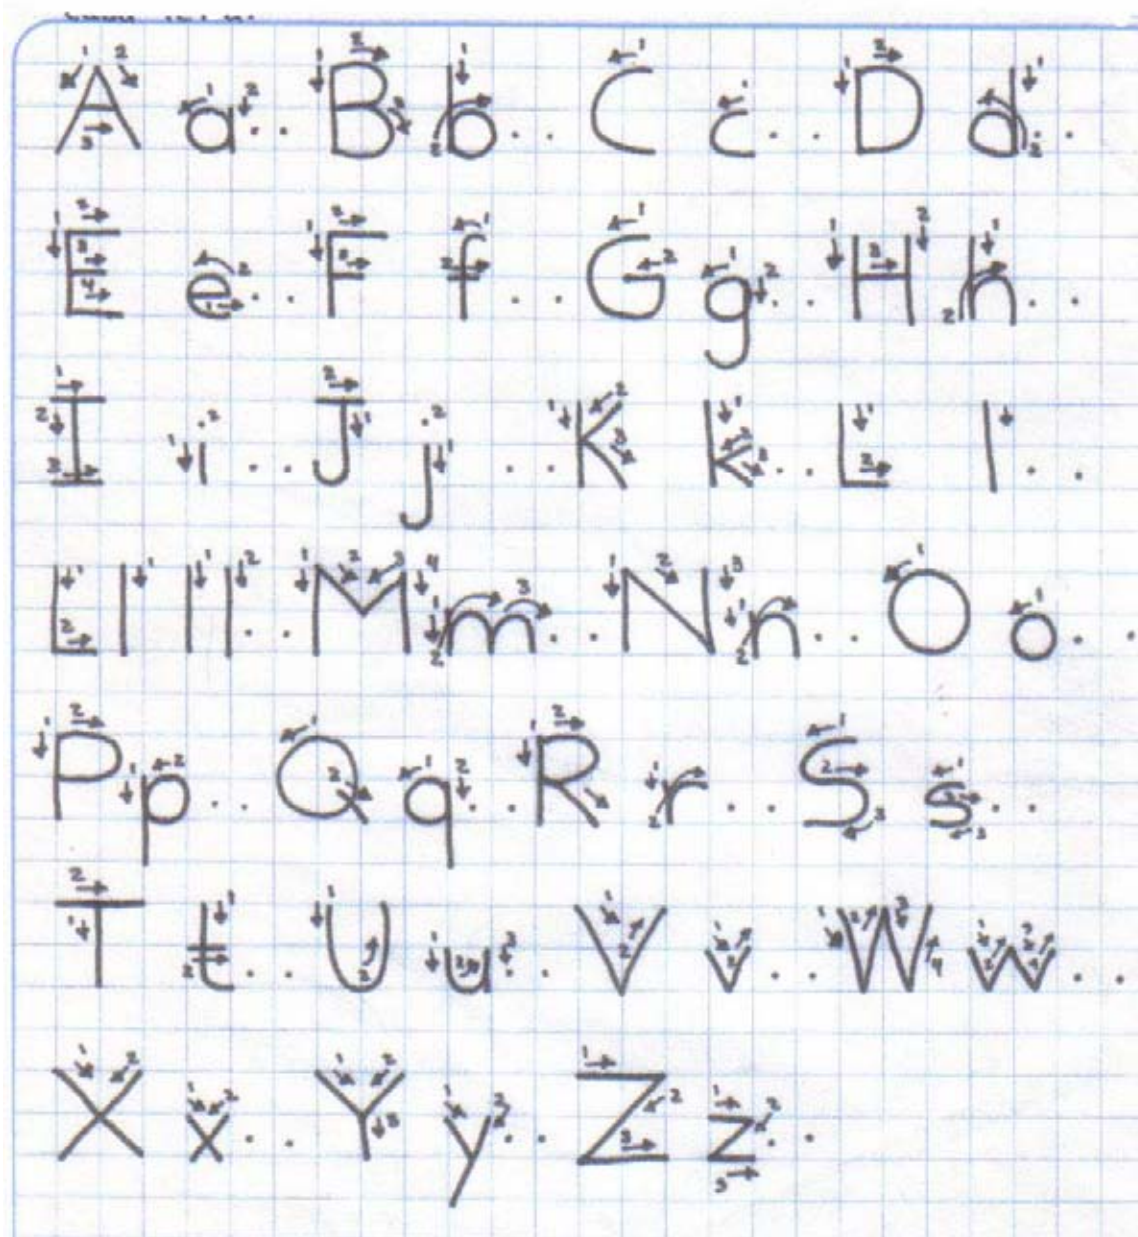 A a . . B b . . C c . . D d . .
E e . . F f . . G g . . H h . .
I i . . J j . . K k . . L l . .
Ll ll . . M m . . N n . . O o . .
P p . . Q q . . R r . . S s . .
T t . . U u . . V v . . W w . .
X x . . Y y . . Z z . .